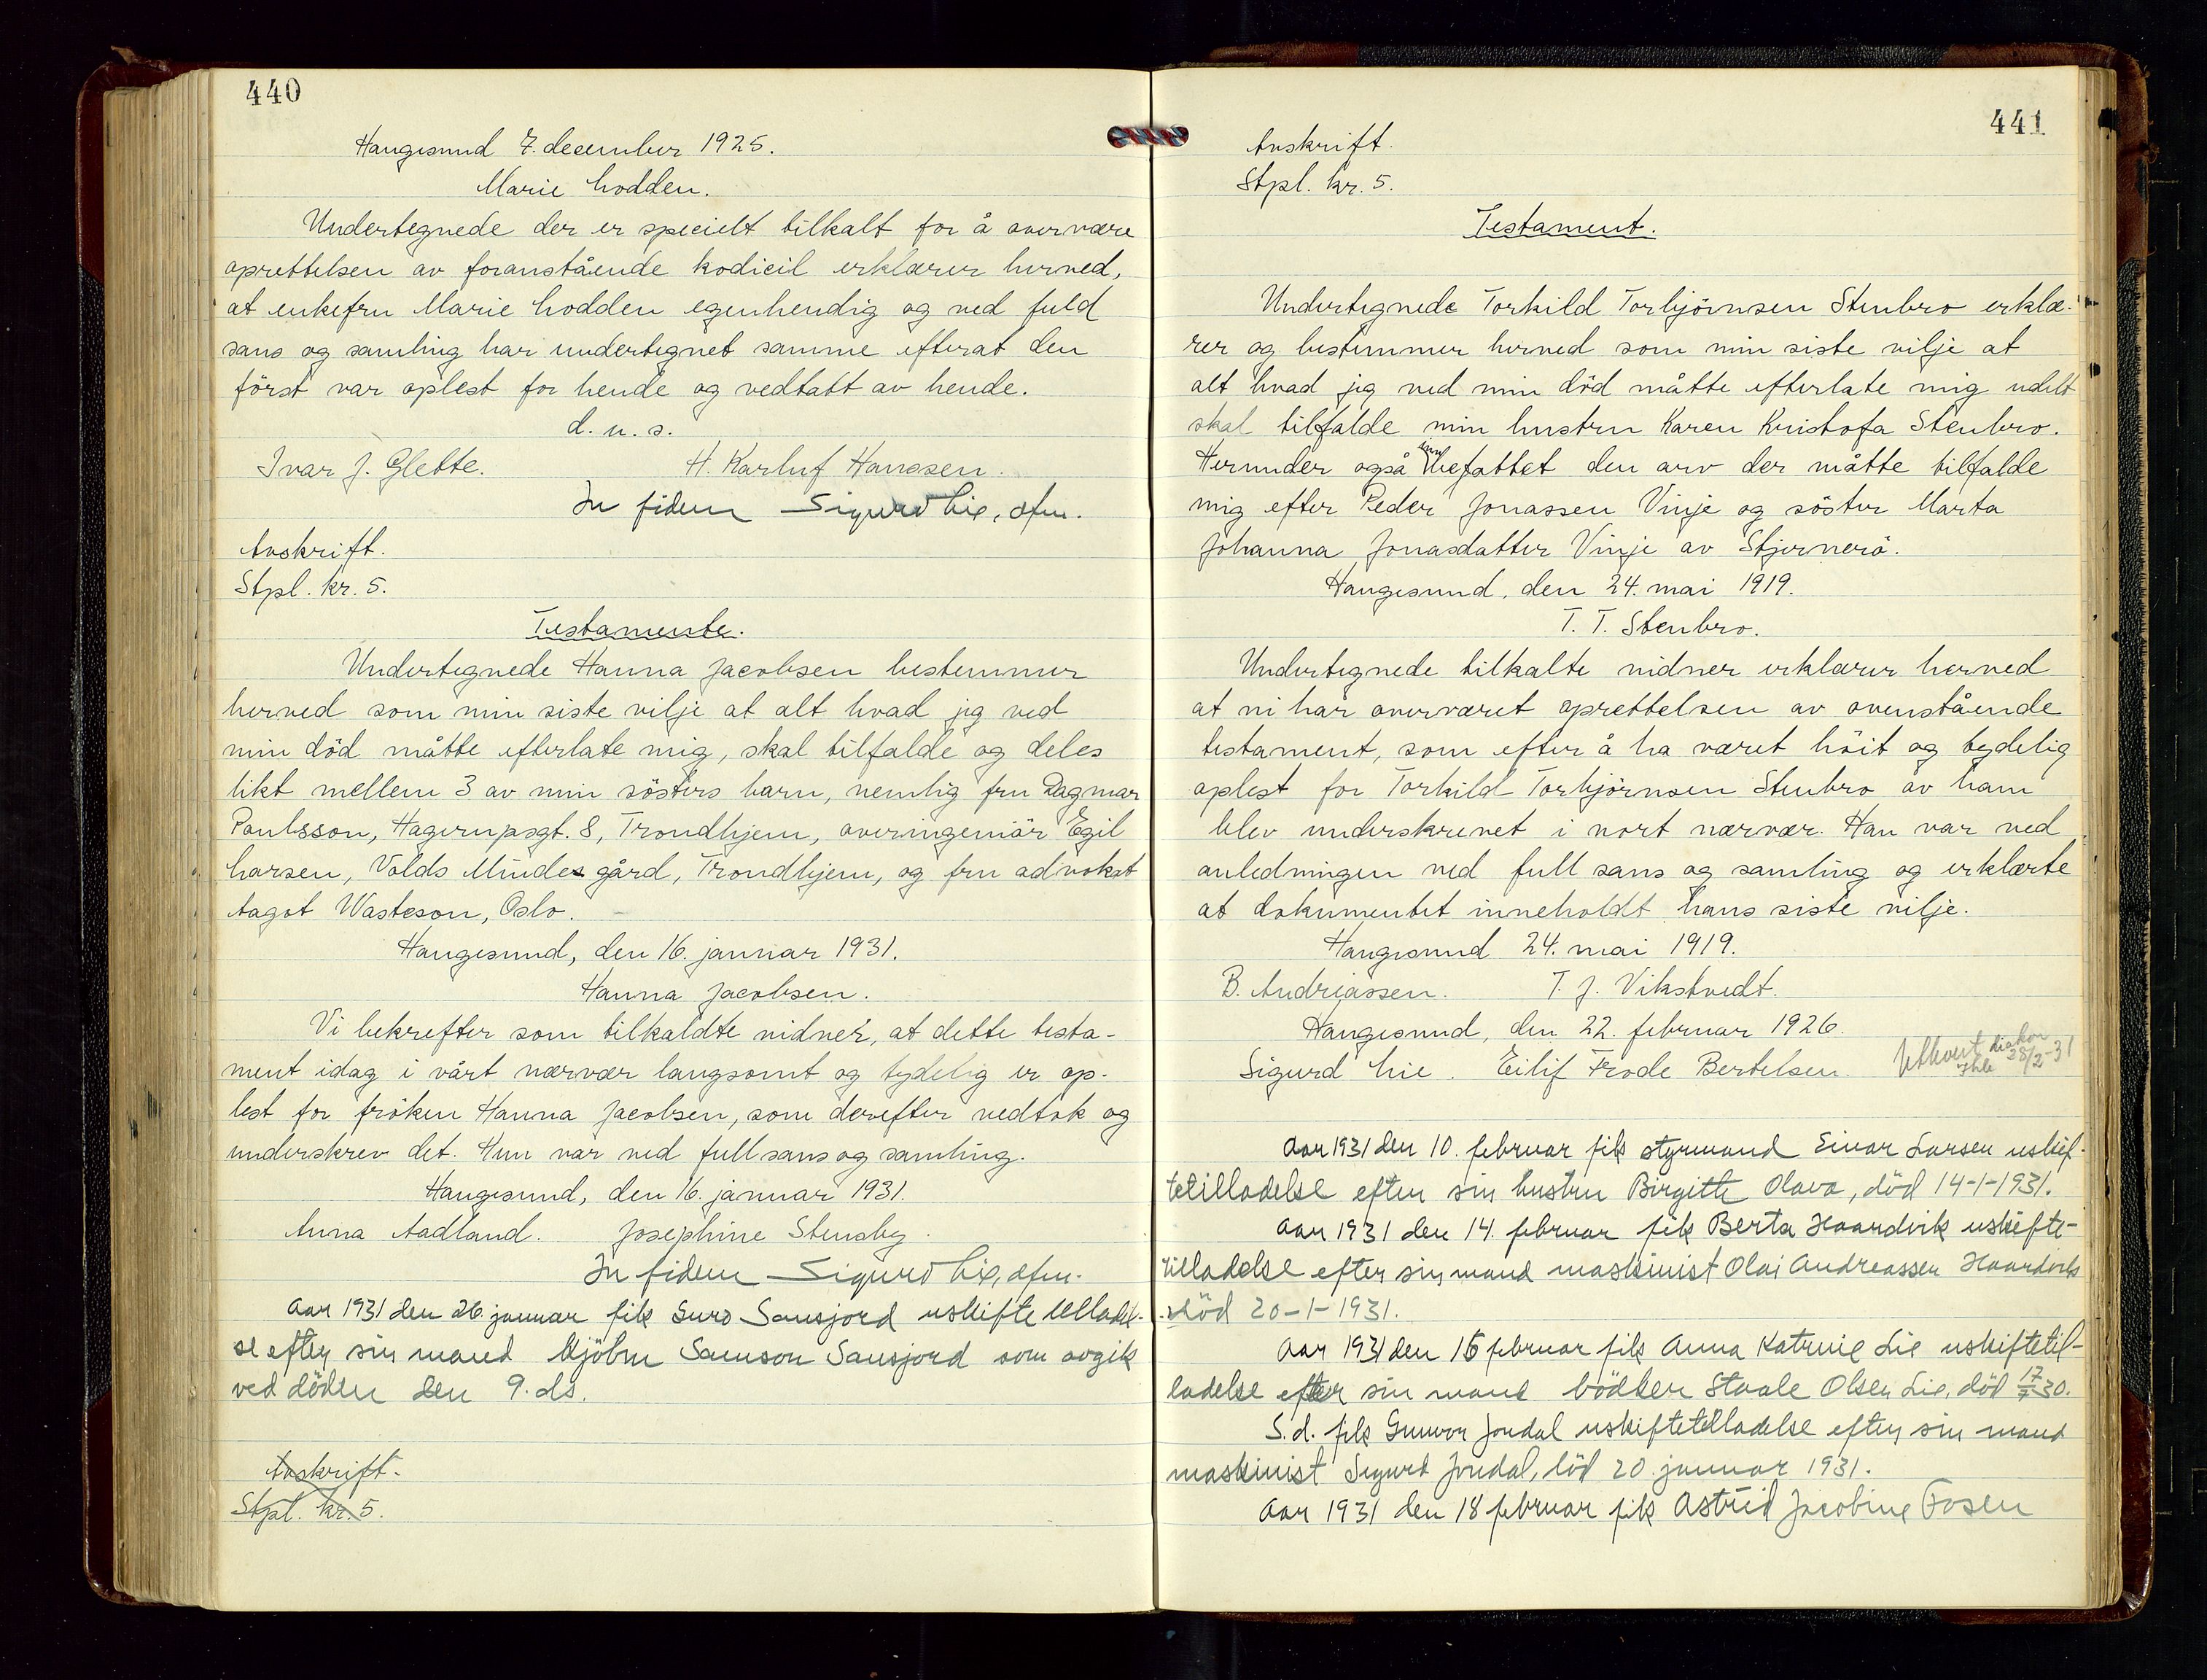 440
Haugesund 7. december 1925.
Marie Lodden.
Undertegnede der er specielt tilkalt for å overvære
oprettelsen av foranstående kodicil erklærer herved,
at enkefru Marie Lodden egenhendig og ved fuld
sans og samling har undertegnet samme efterat den
först var oplest for hende og vedtatt av hende.
d. u. s.
Ivar J. Glette. H. Karluf Hanssen.
In fidem Sigurd Lie, ofm.
Avskrift.
Stpl. kr. 5.
Testamente.
Undertegnede Hanna Jacobsen bestemmer
herved som min siste vilje at alt hvad jeg ved
min död måtte efterlate mig, skal tilfalde og deles
likt mellem 3 av min sösters barn, nemlig fru Dagmar
Paulsson, Hagerupsgt. 8, Trondhjem, overingeniör Egil
Larsen, Volds Mindes gård, Trondhjem, og fru advokat
Aagot Wasteson, Oslo.
Haugesund, den 16. januar 1931.
Hanna Jacobsen.
Vi bekrefter som tilkaldte vidner, at dette testa-
ment idag i vårt nærvær langsomt og tydelig er op-
lest for fröken Hanna Jacobsen, som derefter vedtok og
underskrev det. Hun var ved full sans og samling.
Haugesund, den 16. januar 1931.
Anna Aadland. Josephine Stensby.
In fidem Sigurd Lie, ofm.
Aar 1931 den 26. januar fik Guro Sausjord uskifte tilladel-
se efter sin mand Mjölne Samson Sausjord som avgik
ved döden den 9. ds.
Avskrift.
Stpl. kr. 5.
441
Avskrift.
Stpl. kr. 5.
Testament.
Undertegnede Torkild Torbjörnsen Stenbro erklæ-
rer og bestemmer herved som min siste vilje at
alt hvad jeg ved min död måtte efterlate mig udelt
skal tilfalde min hustru Karen Kristofa Stenbro.
Herunder også innbefattet den arv der måtte tilfalde
mig efter Peder Jonassen Vinje og söster Marta
Johanna Jonasdatter Vinje av Stjernerö.
Haugesund, den 24. mai 1919.
T. T. Stenbro.
Undertegnede tilkalte vidner erklærer herved
at vi har overværet oprettelsen av ovenstående
testament, som efter å ha været höit og tydelig
oplest for Torkild Torbjörnsen Stenbro av ham
blev underskrevet i vort nærvær. Han var ved
anledningen ved full sans og samling og erklærte
at dokumentet inneholdt hans siste vilje.
Haugesund 24. mai 1919.
B. Andreassen. T. J. Vikstvedt.
Haugesund, den 22. februar 1926.
Sigurd Lie. Eilif Frode Bertelsen.
28/2-31
Aar 1931 den 10. februar fik styrmand Einar Larsen uskif-
tetilladelse efter sin hustru Birgitte Olava, död 14-1-1931.
Aar 1931 den 14. februar fik Berta Haardvik uskifte-
tilladelse efter sin mand maskinist Olai Andreassen Haardvik
död 20-1-1931.
Aar 1931 den 16 februar fik Anna Katrine Lie uskiftetil-
ladelse efter sin mand bödker Staale Olsen Lie, död 17/7 30.
S. d. fik Gunvor Jondal uskiftetilladelse efter sin mand
maskinist Sigurd Jondal, död 20. januar 1931.
Aar 1931 den 18 februar fik Astrid Jacobine Fosen